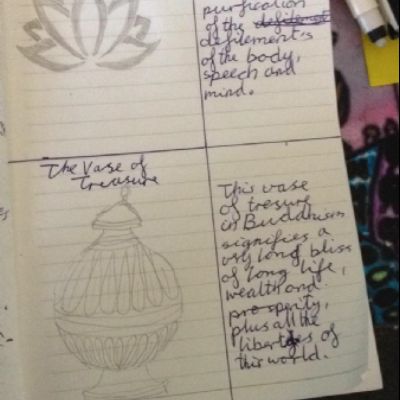 purification
of the defilement
defilement's
of the body,
speech and
mind.
The Vase of
Treasure
This vase
of tresure
in Buddhism
signifies a
very long bliss
of long life,
wealth and
prosperity,
plus all the
liberties of
this world.